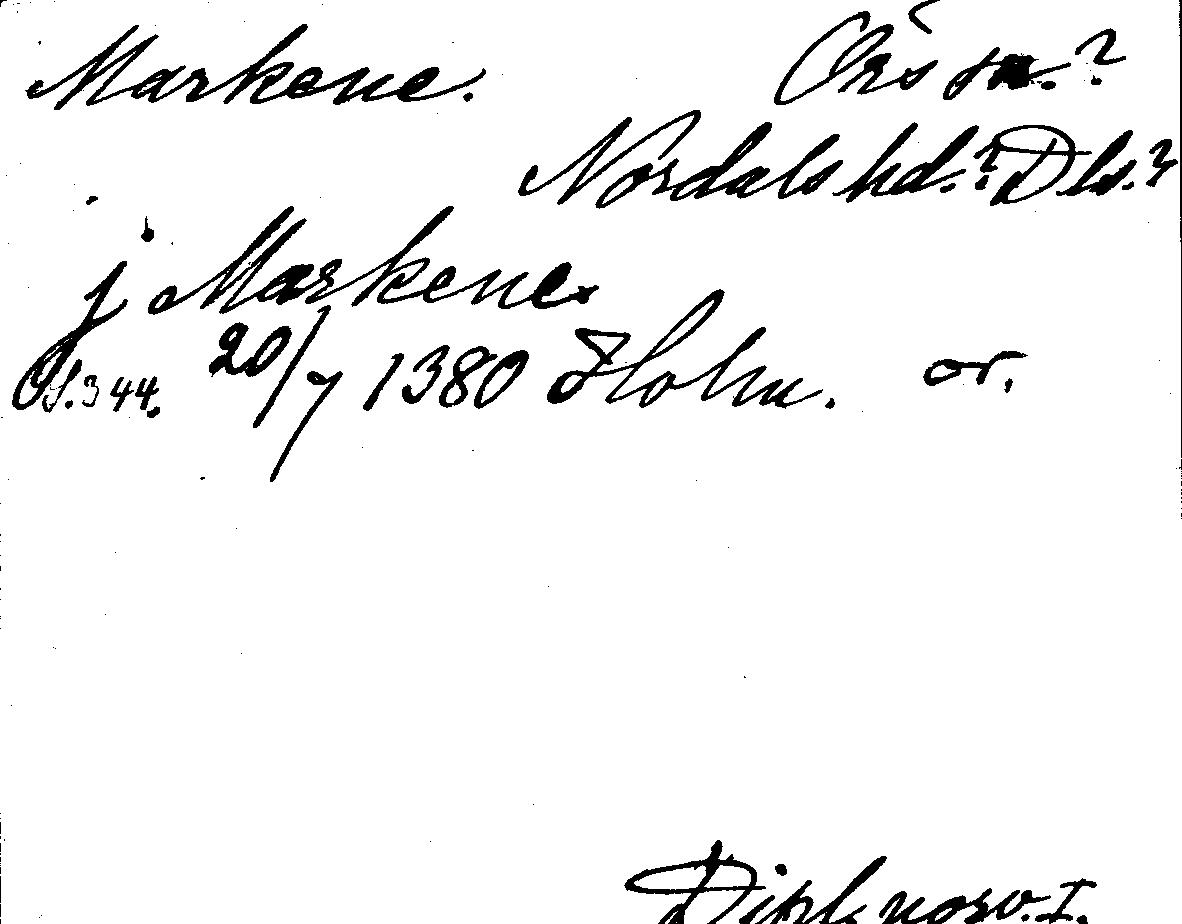 Markene. Örs sn.?
Nordals hd.? Dls.?
j Markene.
OS. 344. 20/7 1380 Holm. or.
Dipl. norv. I.